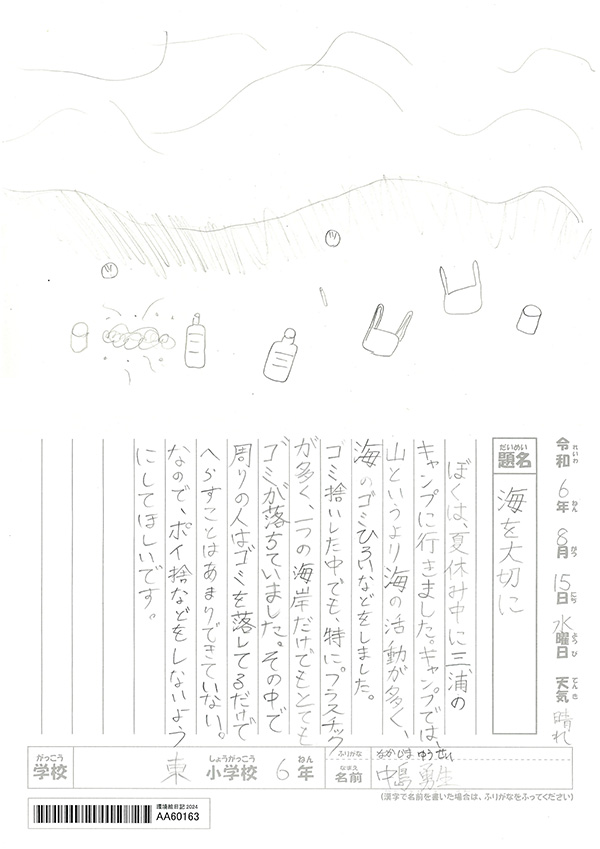 令和6年8月15日水曜日 天気 晴れ
れいわ ねん がつ にち ようび てんき
だいめい
題名 海を大切に
ぼくは、夏休み中に三浦の
キャンプに行きました。キャンプでは、
山というより海の活動が多く、
海のゴミひろいなどをしました。
ゴミ捨いした中でも、特にプラスチック
が多く、一つの海岸だけでもとても
ゴミが落ちていました。その中で
周りの人はゴミを落してるだけで
へらすことはあまりできていない。
なので、ポイ捨などをしないよう
にしてほしいです。
がっこう しょうがっこう ねん
学校 東 小学校 6年
ふりがな なかじま ゆうせい
なまえ
名前 中島 勇生
(漢字で名前を書いた場合は、ふりがなをふってください)
環境絵日記2024
AA60163